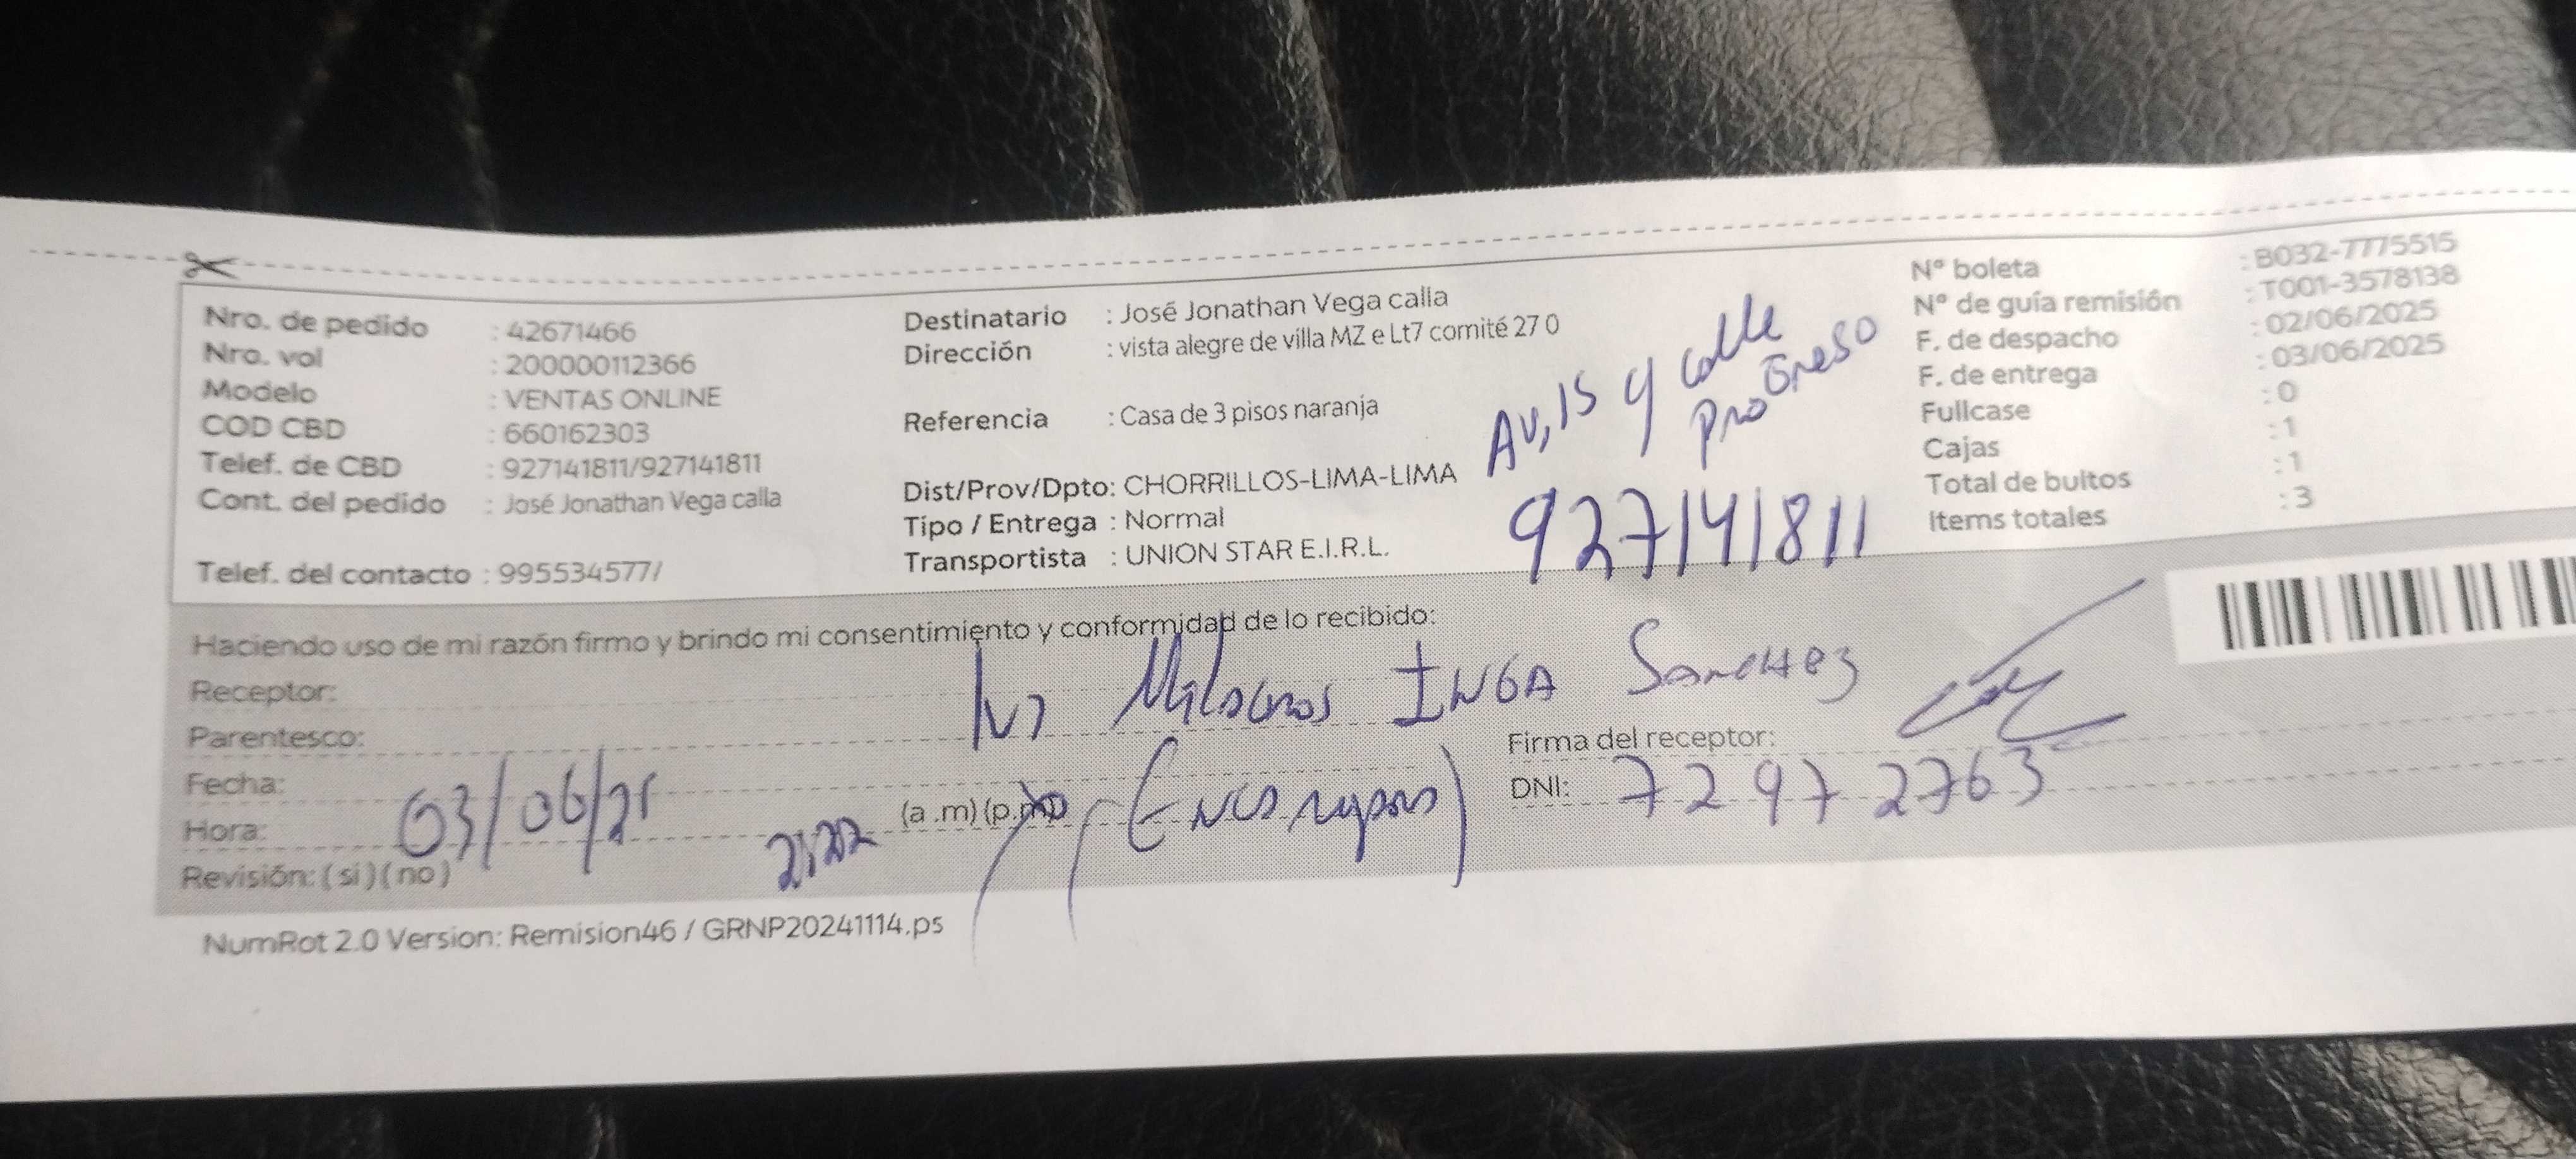 Nro. de pedido : 42671466
Nro. vol : 200000112366
Modelo : VENTAS ONLINE
COD CBD : 660162303
Telef. de CBD : 927141811/927141811
Cont. del pedido : José Jonathan Vega calla
Telef. del contacto : 995534577/
Destinatario : José Jonathan Vega calla
Dirección : vista alegre de villa MZ e Lt7 comité 27 0
Referencia : Casa de 3 pisos naranja
Dist/Prov/Dpto: CHORRILLOS-LIMA-LIMA
Tipo / Entrega : Normal
Transportista : UNION STAR E.I.R.L.
Av, 15 y calle
Progreso
927141811
N° boleta : B032-7775515
N° de guía remisión : T001-3578138
F. de despacho : 02/06/2025
F. de entrega : 03/06/2025
Fullcase : 0
Cajas : 1
Total de bultos : 1
Items totales : 3
Haciendo uso de mi razón firmo y brindo mi consentimiento y conformidad de lo recibido:
Receptor: Milagros INGA Sanchez
Parentesco:
Firma del receptor:
Fecha: 03/06/25
Hora: (a .m) (p.m)
DNI: 72972763
Revisión: ( si ) ( no )
NumRot 2.0 Version: Remision46 / GRNP20241114.ps